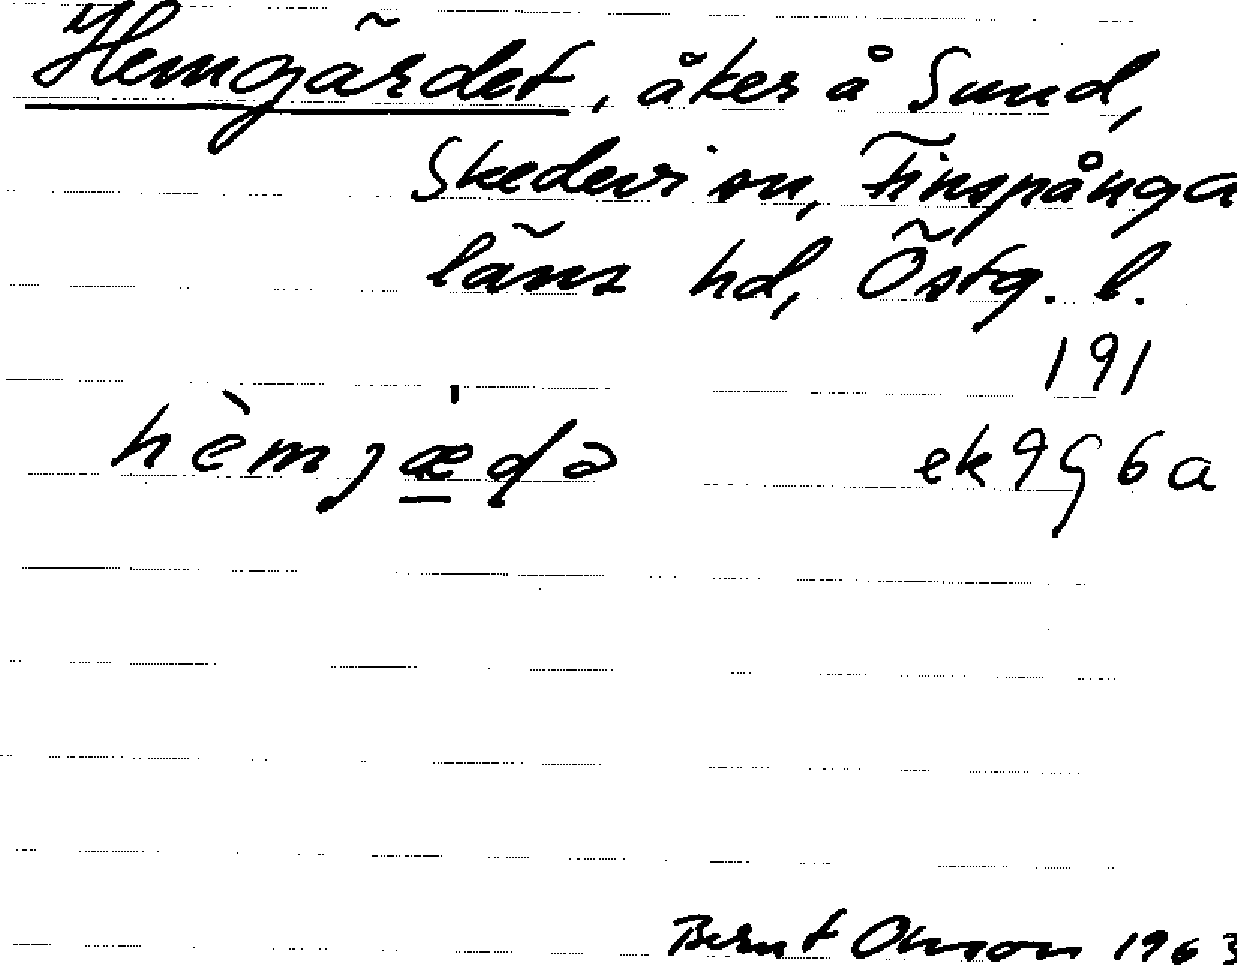 Hemgärdet, åker å Sund,
Skedevi sn, Finspånga
läns hd, Östg. l.
191
hèmjæ̲̍ḍə ek 9G6a
Bernt Olsson 1963